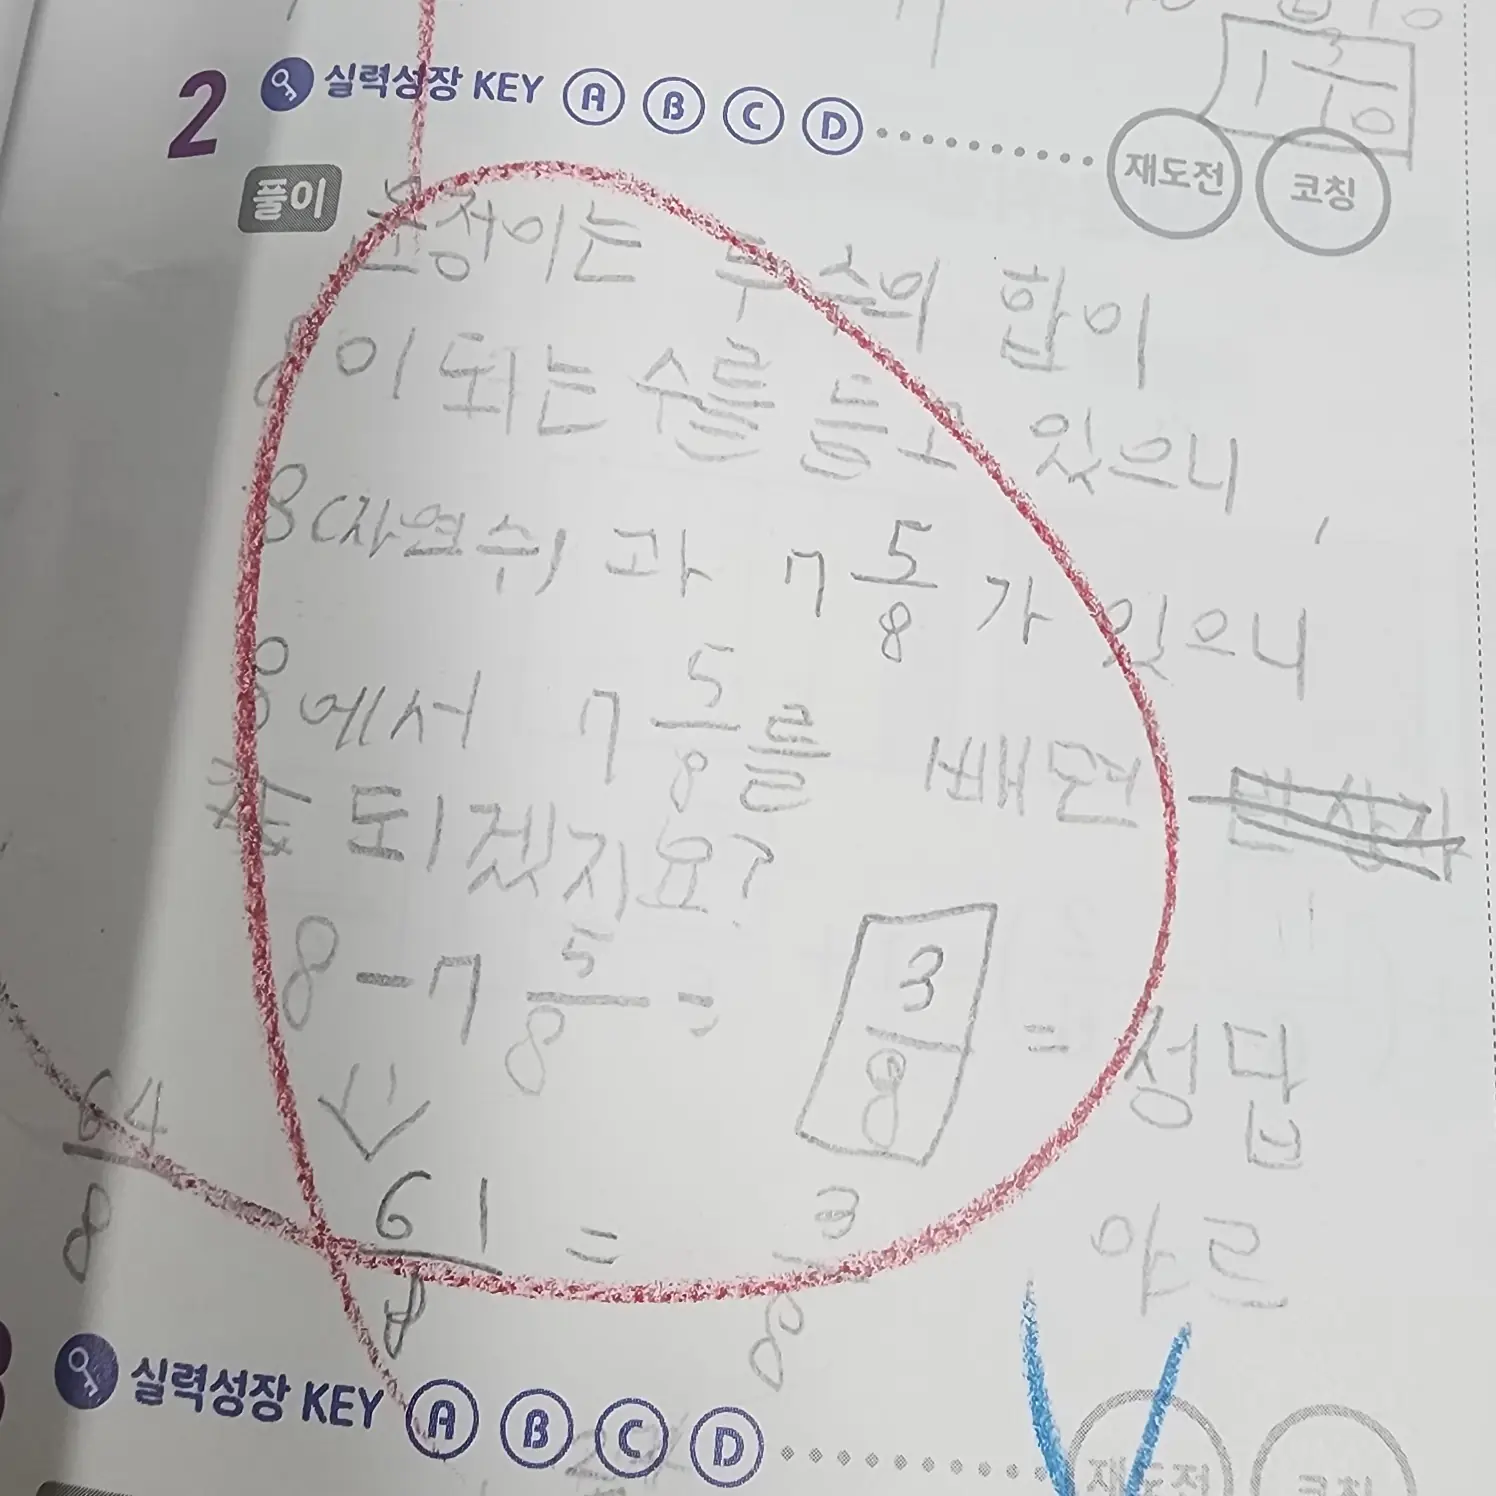 1 3/10
2 실력성장 KEY A B C D
재도전 코칭
풀이
윤정이는 두 수의 합이
8이 되는 수를 들고 있으니,
8(자연수)과 7 5/8가 있으니
8에서 7 5/8를 빼면
되겠지요?
8-7 5/8 = 3/8 = 성답
64/8
61/8 = 3/8
야르
실력성장 KEY A B C D
재도전 코칭